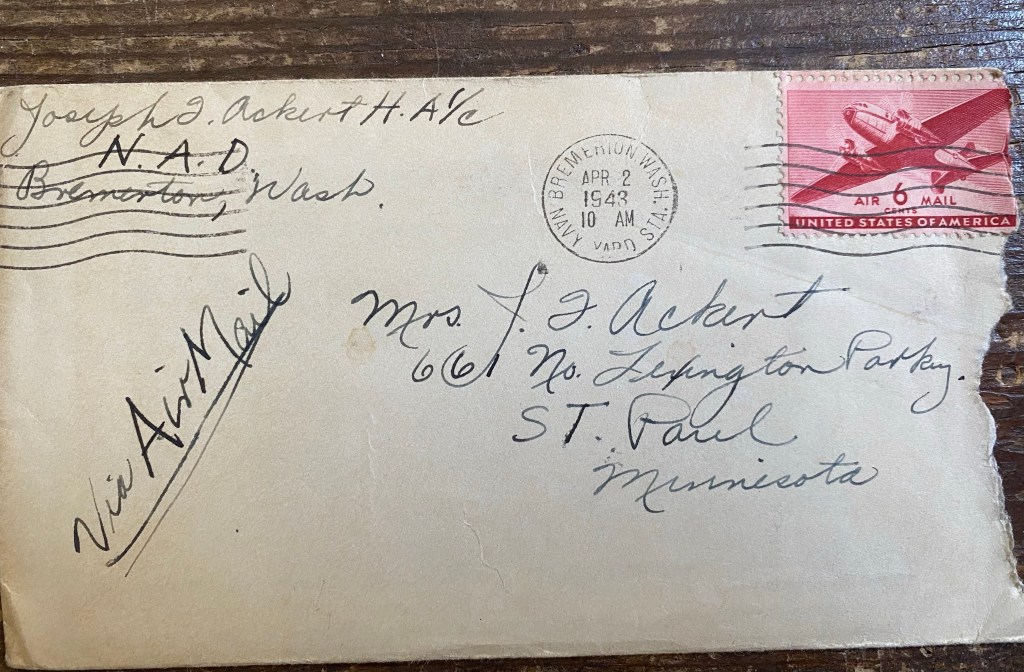 Joseph F. Ackert H.A 1/c
N.A.D
Bremerton, Wash.
BREMERTON, WASH.
APR 2
1943
10 AM
NAVY YARD STA.
AIR 6 MAIL
CENTS
UNITED STATES OF AMERICA
Via Air Mail
Mrs. J. F. Ackert
661 No. Lexington Parky.
ST. Paul
Minnesota